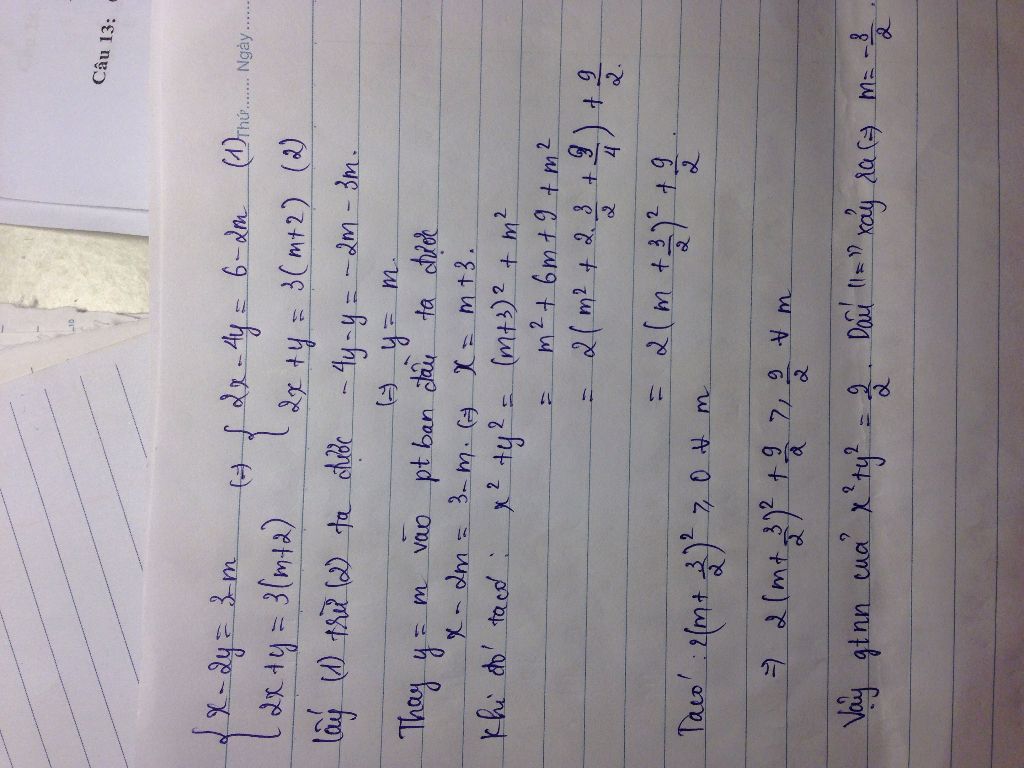 Câu 13:
Thứ......... Ngày
{ x - 2y = 3 - m (=) { 2x - 4y = 6 - 2m (1)
{ 2x + y = 3(m+2) { 2x + y = 3(m+2) (2)
Lấy (1) trừ (2) ta được - 4y - y = - 2m - 3m.
(=) y = m.
Thay y = m vào pt ban đầu ta được
x - 2m = 3 - m. (=) x = m+3.
Khi đó ta có: x² + y² = (m+3)² + m²
= m² + 6m + 9 + m²
= 2(m² + 2.3/2 + 9/4) + 9/2.
= 2(m + 3/2)² + 9/2.
Ta có: 2(m + 3/2)² ≥ 0 ∀ m
=) 2(m + 3/2)² + 9/2 ≥, 9/2 ∀ m
Vậy gtnn của x² + y² = 9/2. Dấu "=" xảy ra (=) m = -3/2.